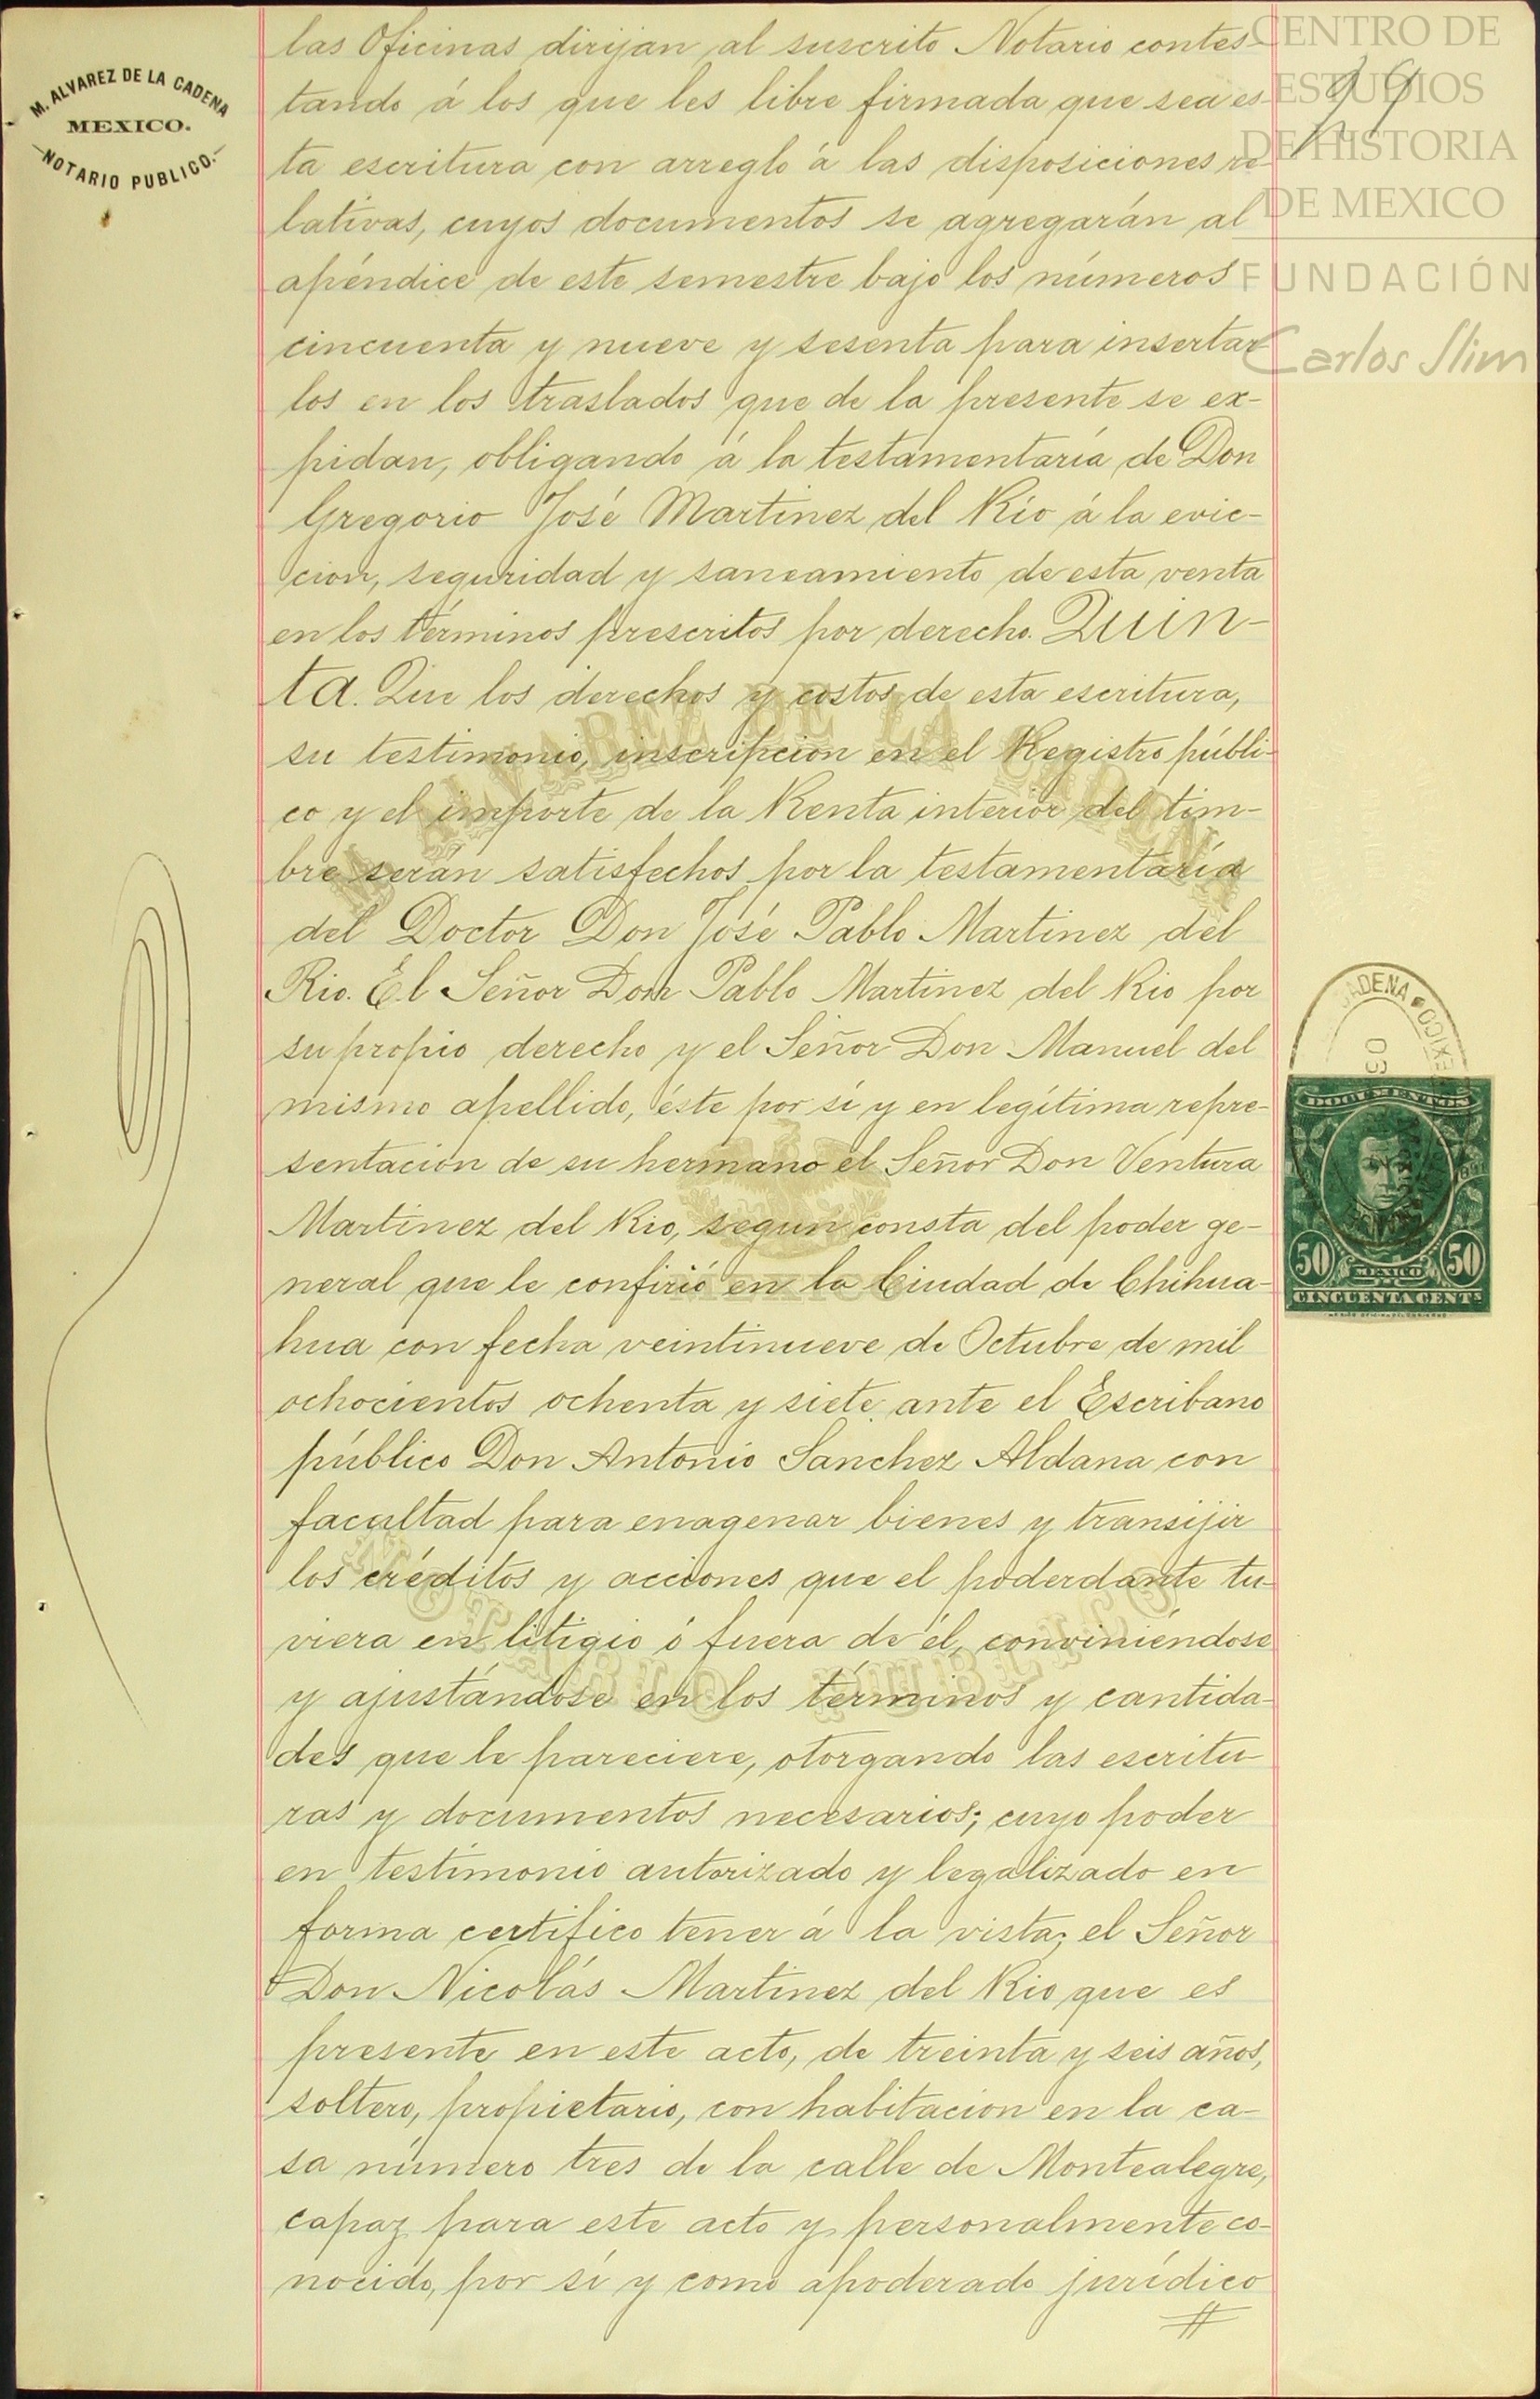 M. ALVAREZ DE LA CADENA
MEXICO.
NOTARIO PUBLICO.
CENTRO DE
ESTUDIOS
DE HISTORIA
DE MEXICO
FUNDACIÓN
Carlos Slim
las Oficinas dirijan al suscrito Notario contes-
tando á los que les libre firmada que sea es-
ta escritura con arreglo á las disposiciones re-
lativas, cuyos documentos se agregarán al
apéndice de este semestre bajo los números
cincuenta y nueve y sesenta para insertar
los en los traslados que de la presente se ex-
pidan, obligando á la testamentaría de Don
Gregorio José Martinez del Rio á la evic-
cion, seguridad y saneamiento de esta venta
en los términos prescritos por derecho. Quin-
ta. Que los derechos y costos de esta escritura,
su testimonio, inscripcion en el Registro públi-
co y el importe de la Renta interior del tim-
bre serán satisfechos por la testamentaría
del Doctor Don José Pablo Martinez del
Rio. El Señor Don Pablo Martinez del Rio por
su propio derecho y el Señor Don Manuel del
mismo apellido, éste por sí y en legítima repre-
sentacion de su hermano el Señor Don Ventura
Martinez del Rio, segun consta del poder ge-
neral que le confirió en la Ciudad de Chihua-
hua con fecha veintinueve de Octubre de mil
ochocientos ochenta y siete ante el Escribano
público Don Antonio Sanchez Aldana con
facultad para enagenar bienes y transijir
los créditos y acciones que el poderdante tu-
viera en litigio ó fuera de él, conviniéndose
y ajustándose en los términos y cantida-
des que le pareciere, otorgando las escritu-
ras y documentos necesarios; cuyo poder
en testimonio autorizado y legalizado en
forma certifico tener á la vista; el Señor
Don Nicolás Martinez del Rio que es
presente en este acto, de treinta y seis años,
soltero, propietario, con habitacion en la ca-
sa número tres de la calle de Montealegre,
capaz para este acto y personalmente co-
nocido, por sí y como apoderado jurídico
CADENA
MEXICO
DOCUMENTOS
50 MEXICO 50
CINCUENTA CENTS
M. ALVAREZ DE LA CADENA
MEXICO
NOTARIO PUBLICO